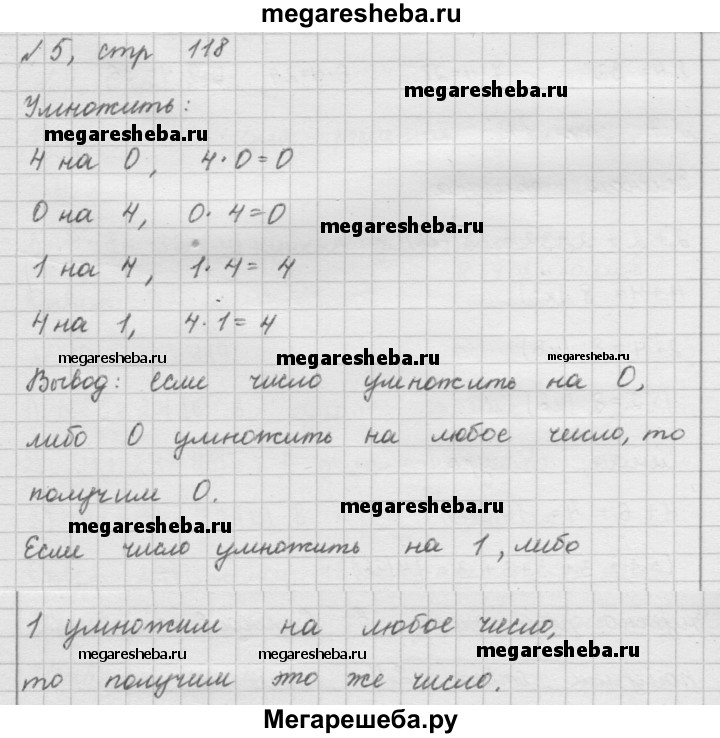 megaresheba.ru
№5, стр 118
megaresheba.ru
Умножить:
megaresheba.ru
4 на 0, 4·0=0
0 на 4, 0·4=0
megaresheba.ru
1 на 4, 1·4=4
4 на 1, 4·1=4
megaresheba.ru megaresheba.ru megaresheba.ru
Вывод: если число умножить на 0,
либо 0 умножить на любое число, то
получим 0.
megaresheba.ru
megaresheba.ru
Если число умножить на 1, либо
1 умножим на любое число,
megaresheba.ru megaresheba.ru megaresheba.ru
то получим это же число.
Мегарешеба.ру